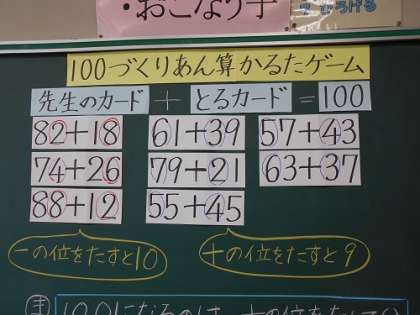 ・おこなう子
ひろげる
100づくりあん算かるたゲーム
先生のカード + とるカード = 100
82+18 61+39 57+43
74+26 79+21 63+37
88+12 55+45
一の位をたすと10 十の位をたすと9